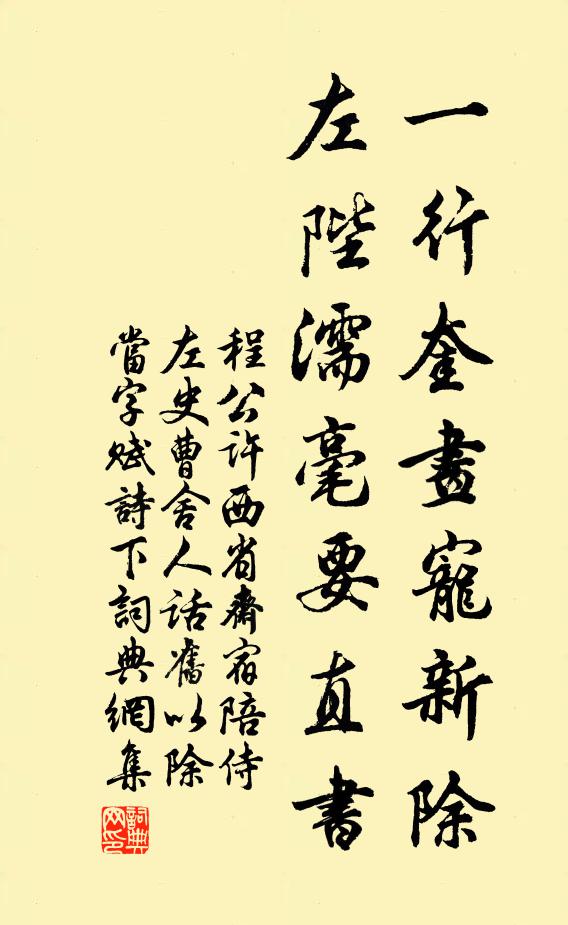 一行奎畫寵新除
左陛濡毫要直書
程公許西省齋宿陪侍
左史曹舍人話舊以除
當字賦詩下詞典網集
詞典網印